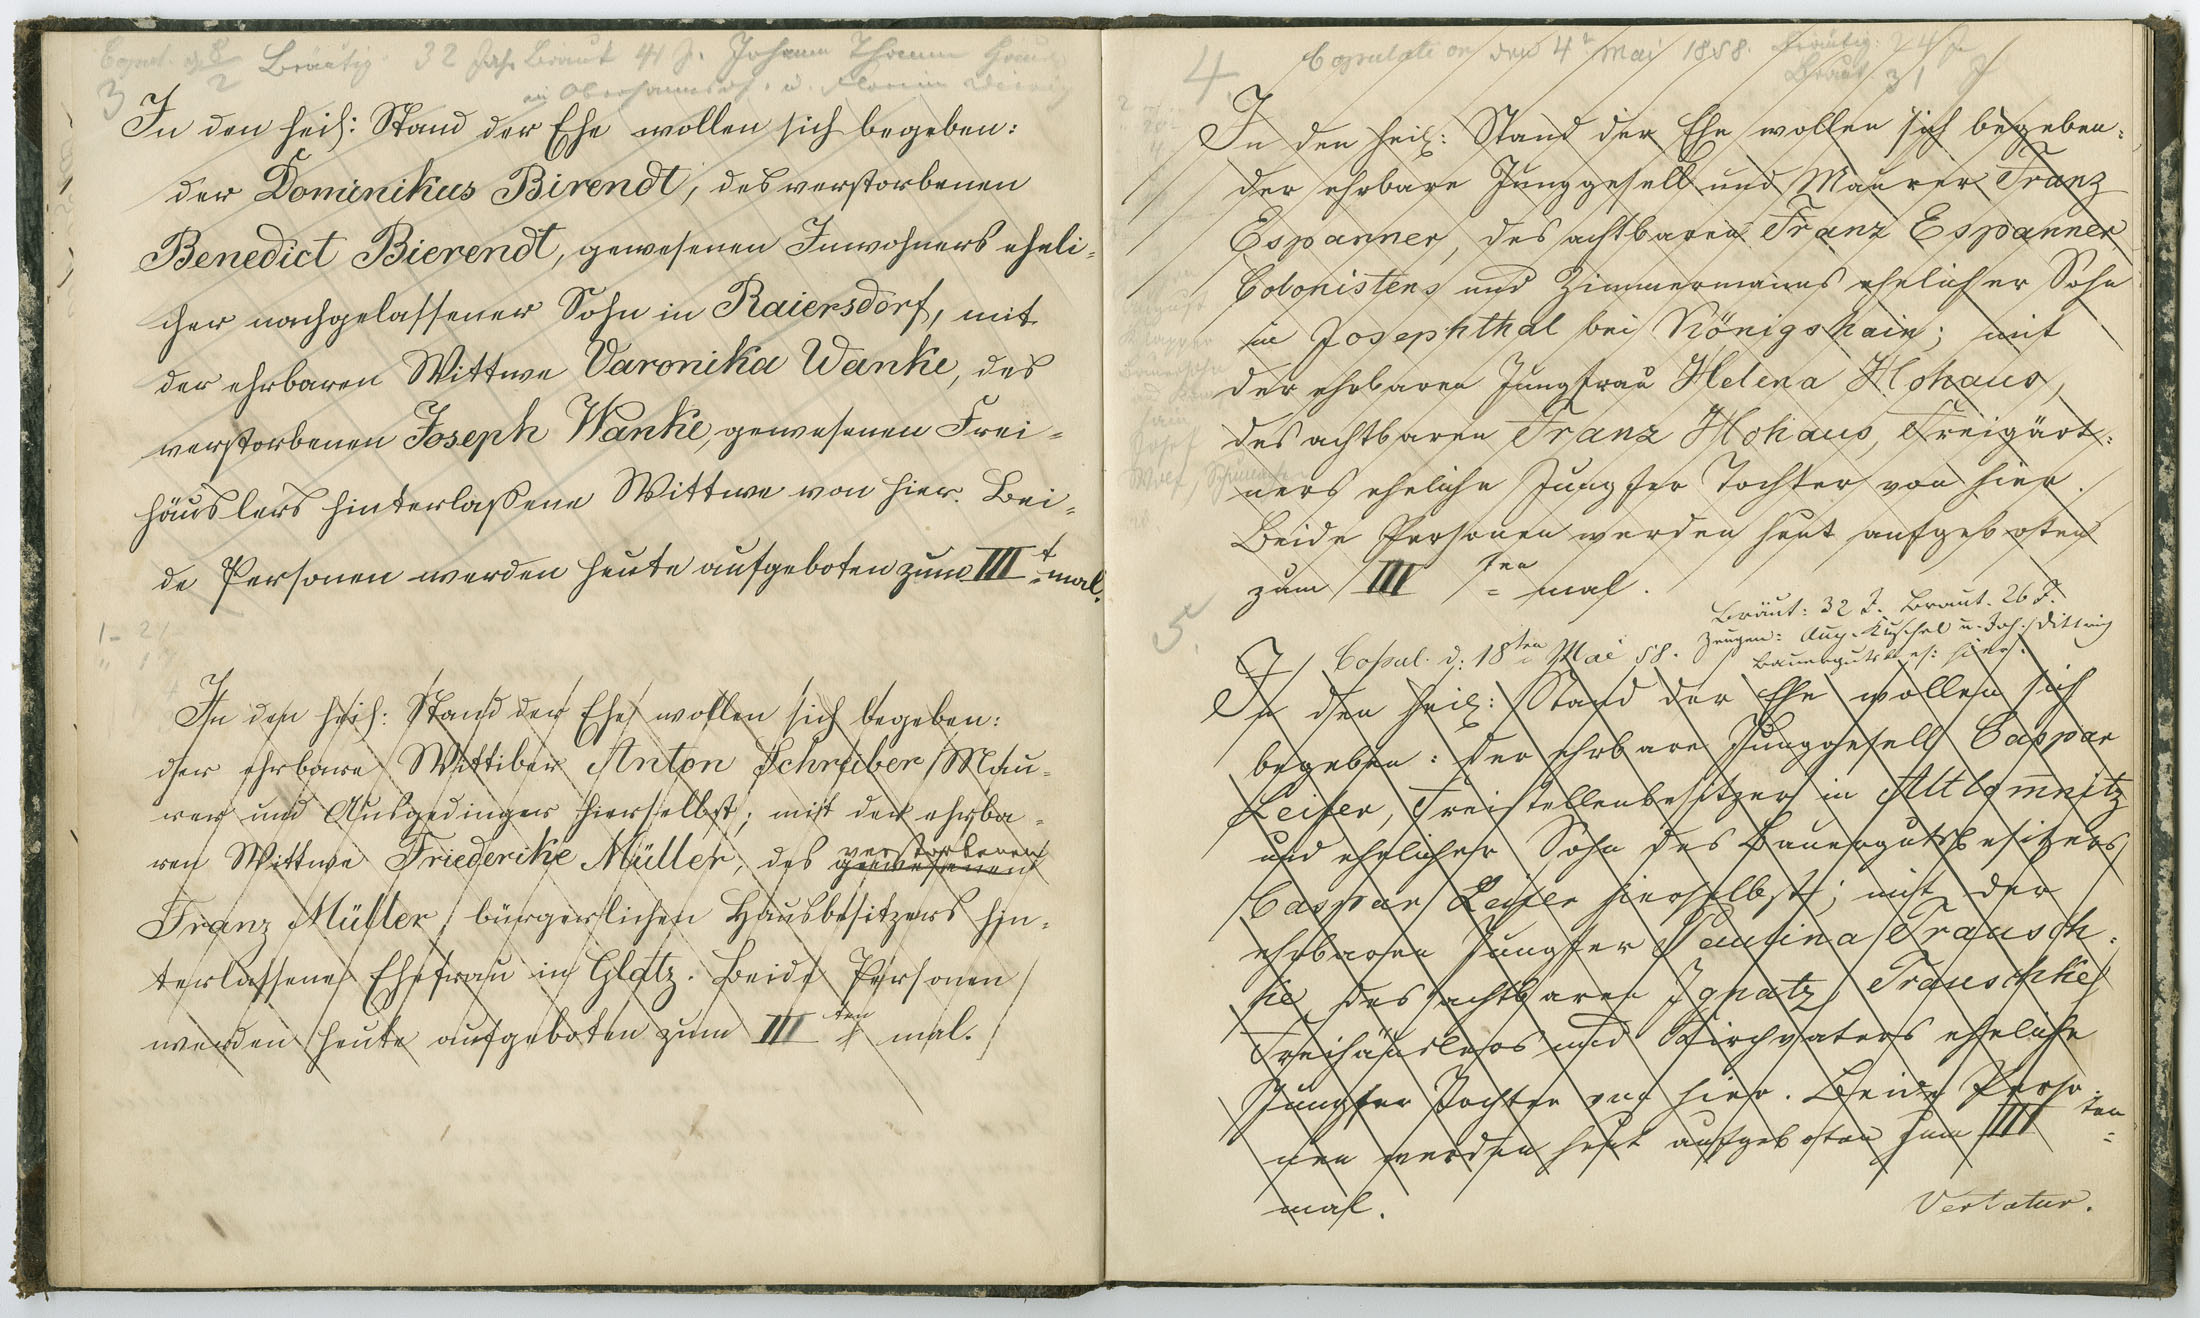 3 Copul. d. 8/2 Bräutig. 32 Jahr Braut 41 J. Johann Thamm
in Obershannsdf. u. Florian
In den heil: Stand der Ehe wollen sich begeben:
der Dominikus Birendt, des verstorbenen
Benedict Bierendt, gewesenen Inwohners eheli-
cher nachgelassener Sohn in Raiersdorf, mit
der ehrbaren Wittwe Varonika Wanke, des
verstorbenen Joseph Wanke, gewesenen Frei-
häuslers hinterlaßene Wittwe von hier. Bei-
de Personen werden heute aufgeboten zum III t mal.
In den heil: Stand der Ehe wollen sich begeben:
der ehrbare Wittiber Anton Schreiber Mau-
rer und Ausgedinger hierselbst; mit der ehrba-
ren Wittwe Friederike Müller, des gewesenen verstorbenen
Franz Müller, bürgerlichen Hausbesitzers hin-
terlassene Ehefrau in Glatz. Beide Personen
werden heute aufgeboten zum III ten mal.
4. Copulation den 4t Mai 1858. Bräutig: 24 J.
Braut 31 J
In den heil: Stand der Ehe wollen sich begeben:
der ehrbare Junggesell und Maurer Franz
Espanner, des achtbaren Franz Espanner
Colonistens und Zimmermanns ehelicher Sohn
in Josephthal bei Königshain; mit
der ehrbaren Jungfrau Helena Hohaus,
des achtbaren Franz Hohaus, Freigärt-
ners eheliche Jungfer Tochter von hier.
Beide Personen werden heut aufgeboten
zum III ten mal.
5. Bräut: 32 J. Braut. 26 J.
Copul. d: 18ten Mai 58. Zeugen: Aug. Kuschel u. Joh. Dittrich
Bauergutsbes: hier.
In den heil: Stand der Ehe wollen sich
begeben: der ehrbare Junggesell Caspar
Leifer, Freistellenbesitzer in Altlomnitz
und ehelicher Sohn des Bauergutsbesitzers
Caspar Leifer hierselbst; mit der
ehrbaren Jungfer Paulina Trausch-
ke des achtbaren Ignatz Trauschke
Freihäuslers und Kirchvaters eheliche
Jungfer Tochter von hier. Beide Perso-
nen werden heut aufgeboten zum III ten
mal.
Vertatur.